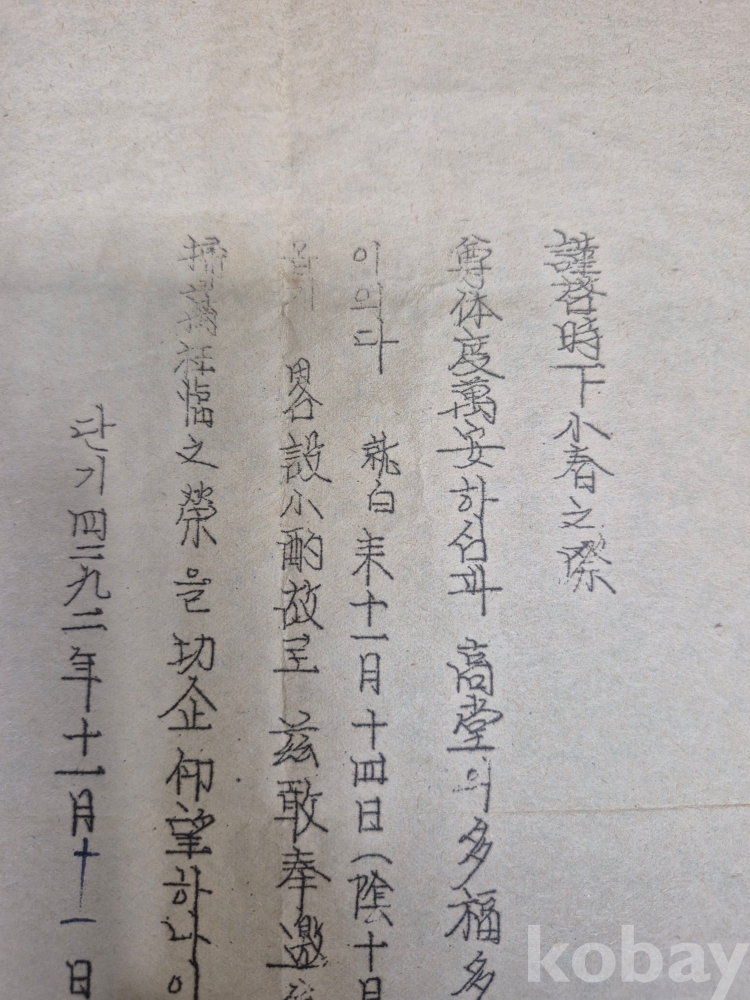 謹啓時下小春之際
尊体度萬安하심과 高堂의 多福多
이외다 就白 来十一月十四日(陰十月
畧設小酌故로 玆敢奉邀
掃萬枉臨之榮을 切企仰望하나이
단기四二九二年十一月十一日
kobay